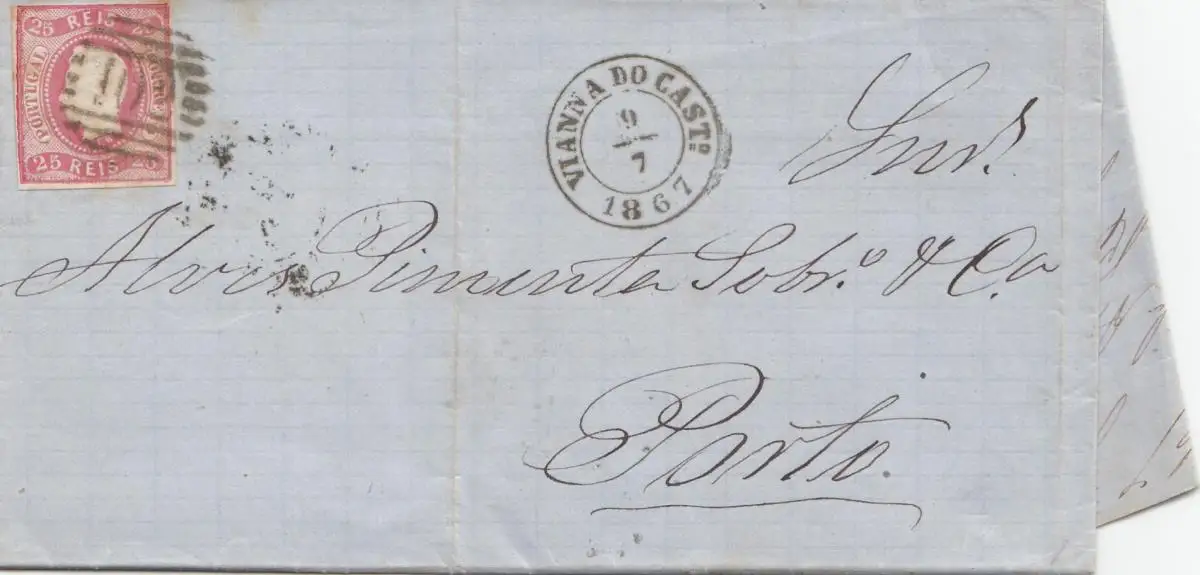 25 REIS 25
PORTUGAL
25 REIS 25
VIANNA DO CASTº
9/7
1867
Snrs
Alves Pimenta Sobr.º & Ca
Porto.